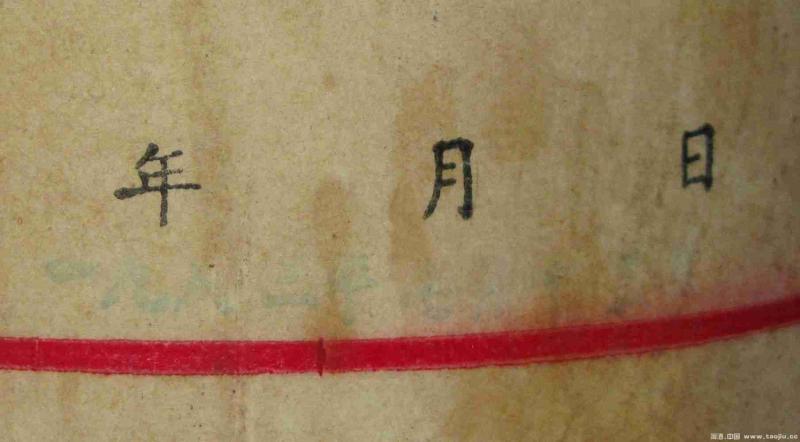 年 月 日
一九九三年七月
淘酒.中国 www.taojiu.cc